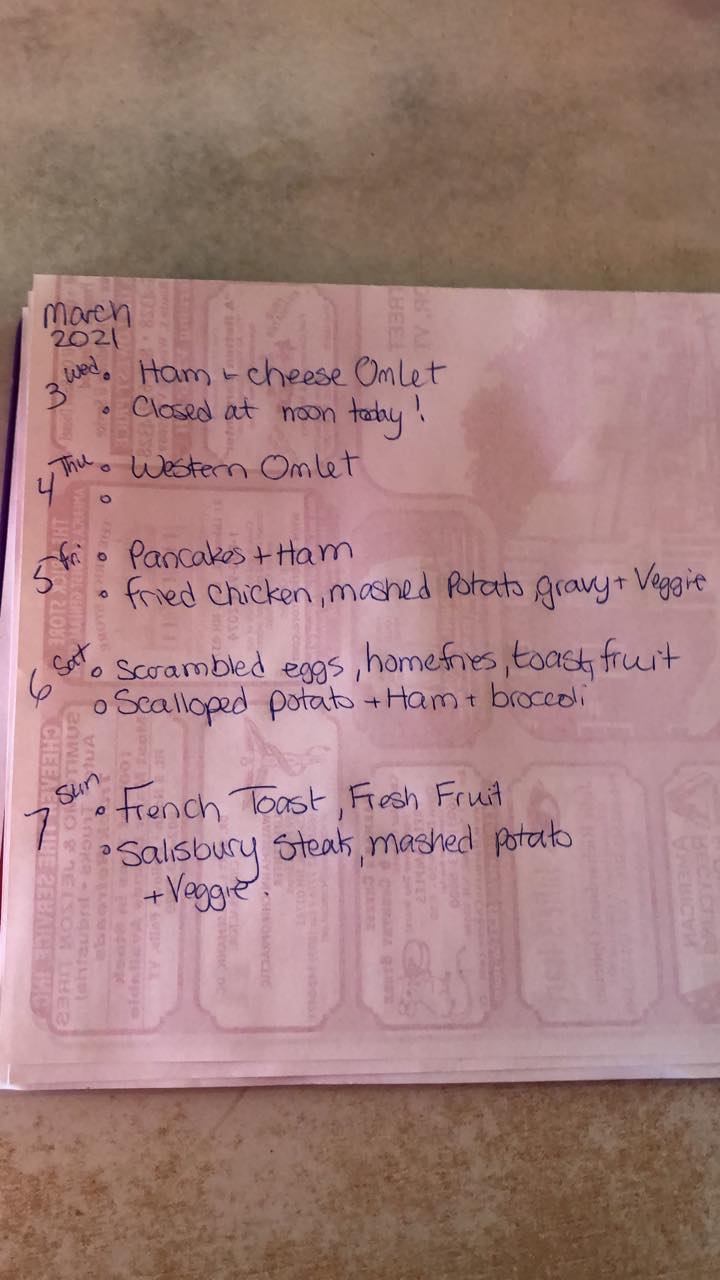 March
2021
3 Wed. • Ham + cheese Omlet
• Closed at noon today!
4 Thu • Western Omlet
•
5 fri • Pancakes + Ham
• fried chicken, mashed Potato, gravy + Veggie
6 Sat • Scrambled eggs, homefries, toast, fruit
• Scalloped potato + Ham + broccoli
7 Sun • French Toast, Fresh Fruit
• Salisbury Steak, mashed potato
+ Veggie.